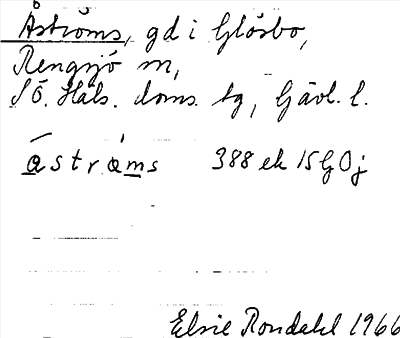 Åströms, gd i Glösbo,
Rengsjö sn,
SÖ. Häls. doms. tg, Gävl. l.
åstrams 388 ek 15G0j
Elsie Rondahl 1966